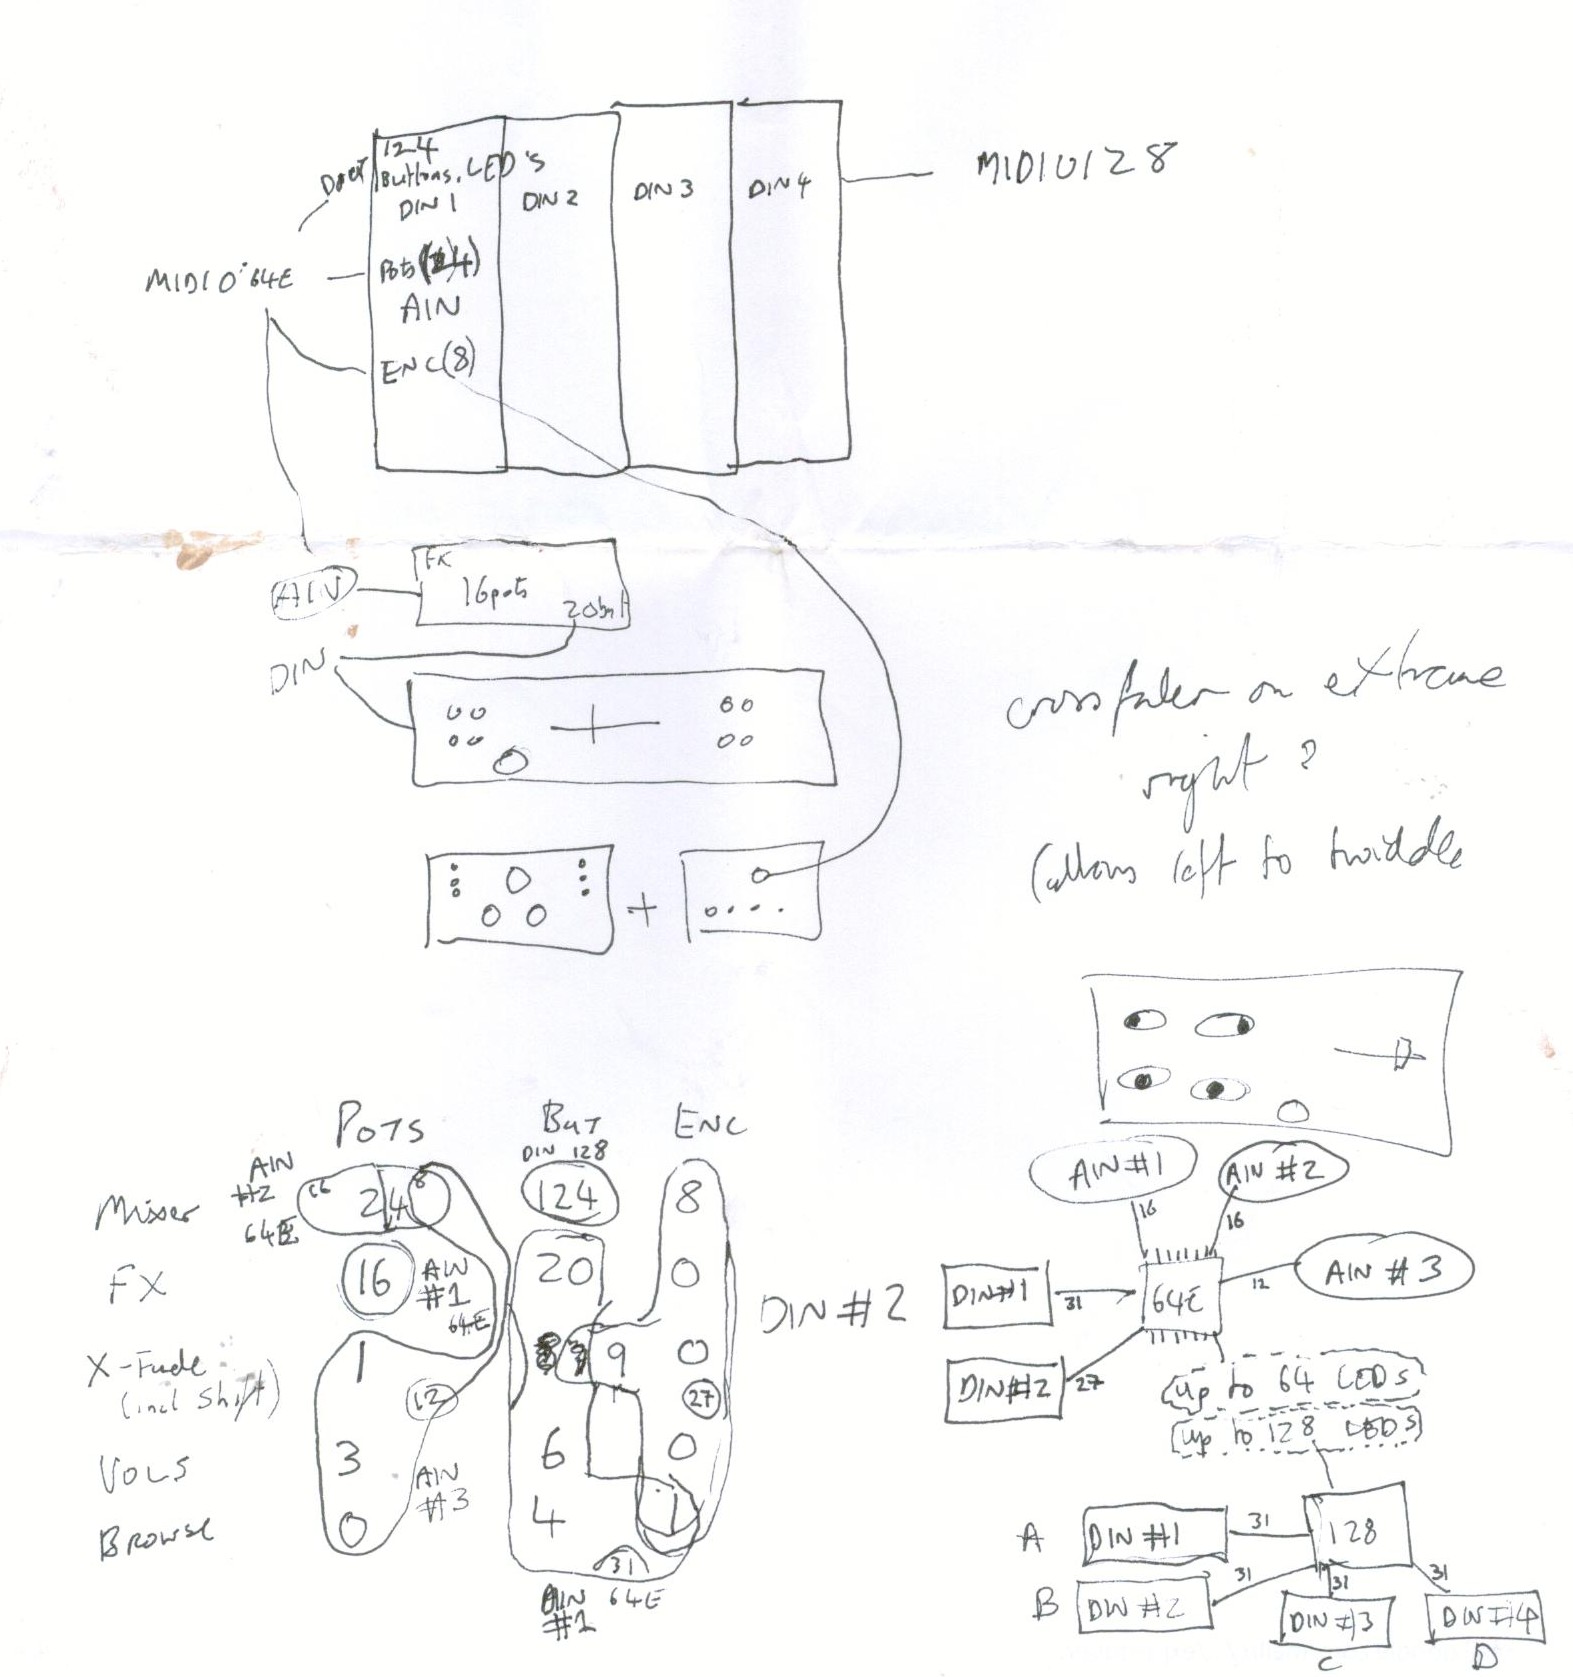 124
Buttons, LED's
DIN 1
DIN 2
DIN 3
DIN 4
MIDIO128
MIDIO 64E
Pots (24)
AIN
ENC(8)
AIN
FX
16pots
20but
DIN
crossfader on extreme
right ?
(allows left to twiddle
+
POTS
BUT
ENC
DIN 128
AIN
#2
64E
Mixer
16
24
8
124
8
FX
16
AIN
#1
64E
20
0
DIN #2
X-Fade
(incl Shift)
1
9
0
12
27
VOLS
3
6
0
AIN
#3
BROWSE
0
4
1
31
AIN 64E
#1
AIN #1
AIN #2
16
16
DIN#1
31
64E
12
AIN #3
DIN#2
27
up to 64 LEDS
up to 128 LEDS
A
DIN #1
31
128
B
DIN #2
31
31
31
DIN #3
DIN #4
C
D